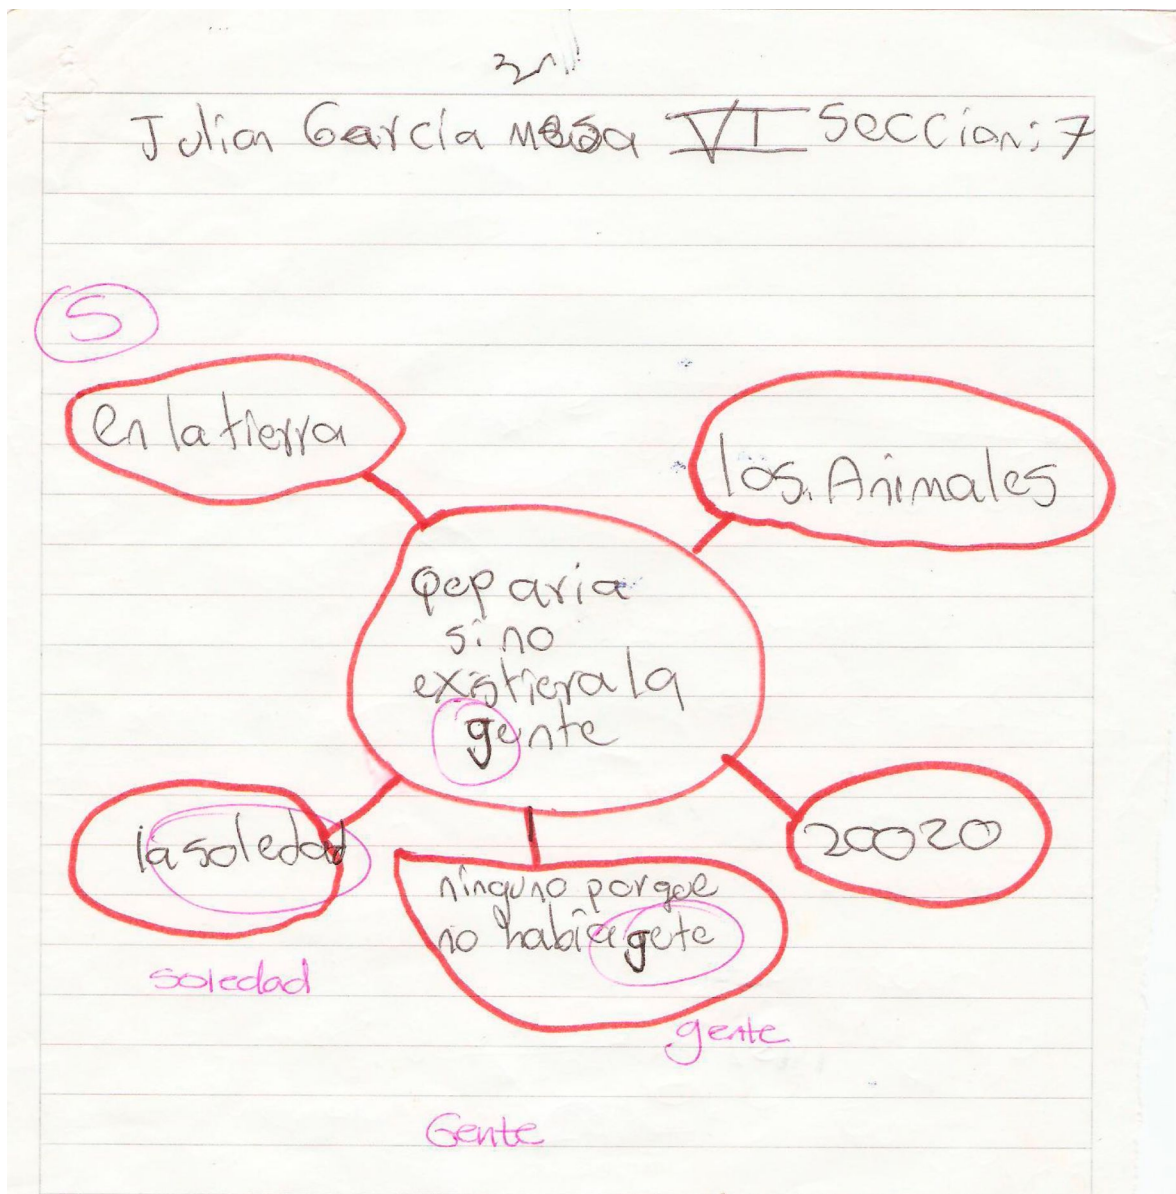 Julian García mesa VI Seccion: 7
5
en la tierra
los. Animales
qep aria
si no
existiera la
gente
la soledad
20020
ninguno porqe
no había gete
soledad
gente
Gente